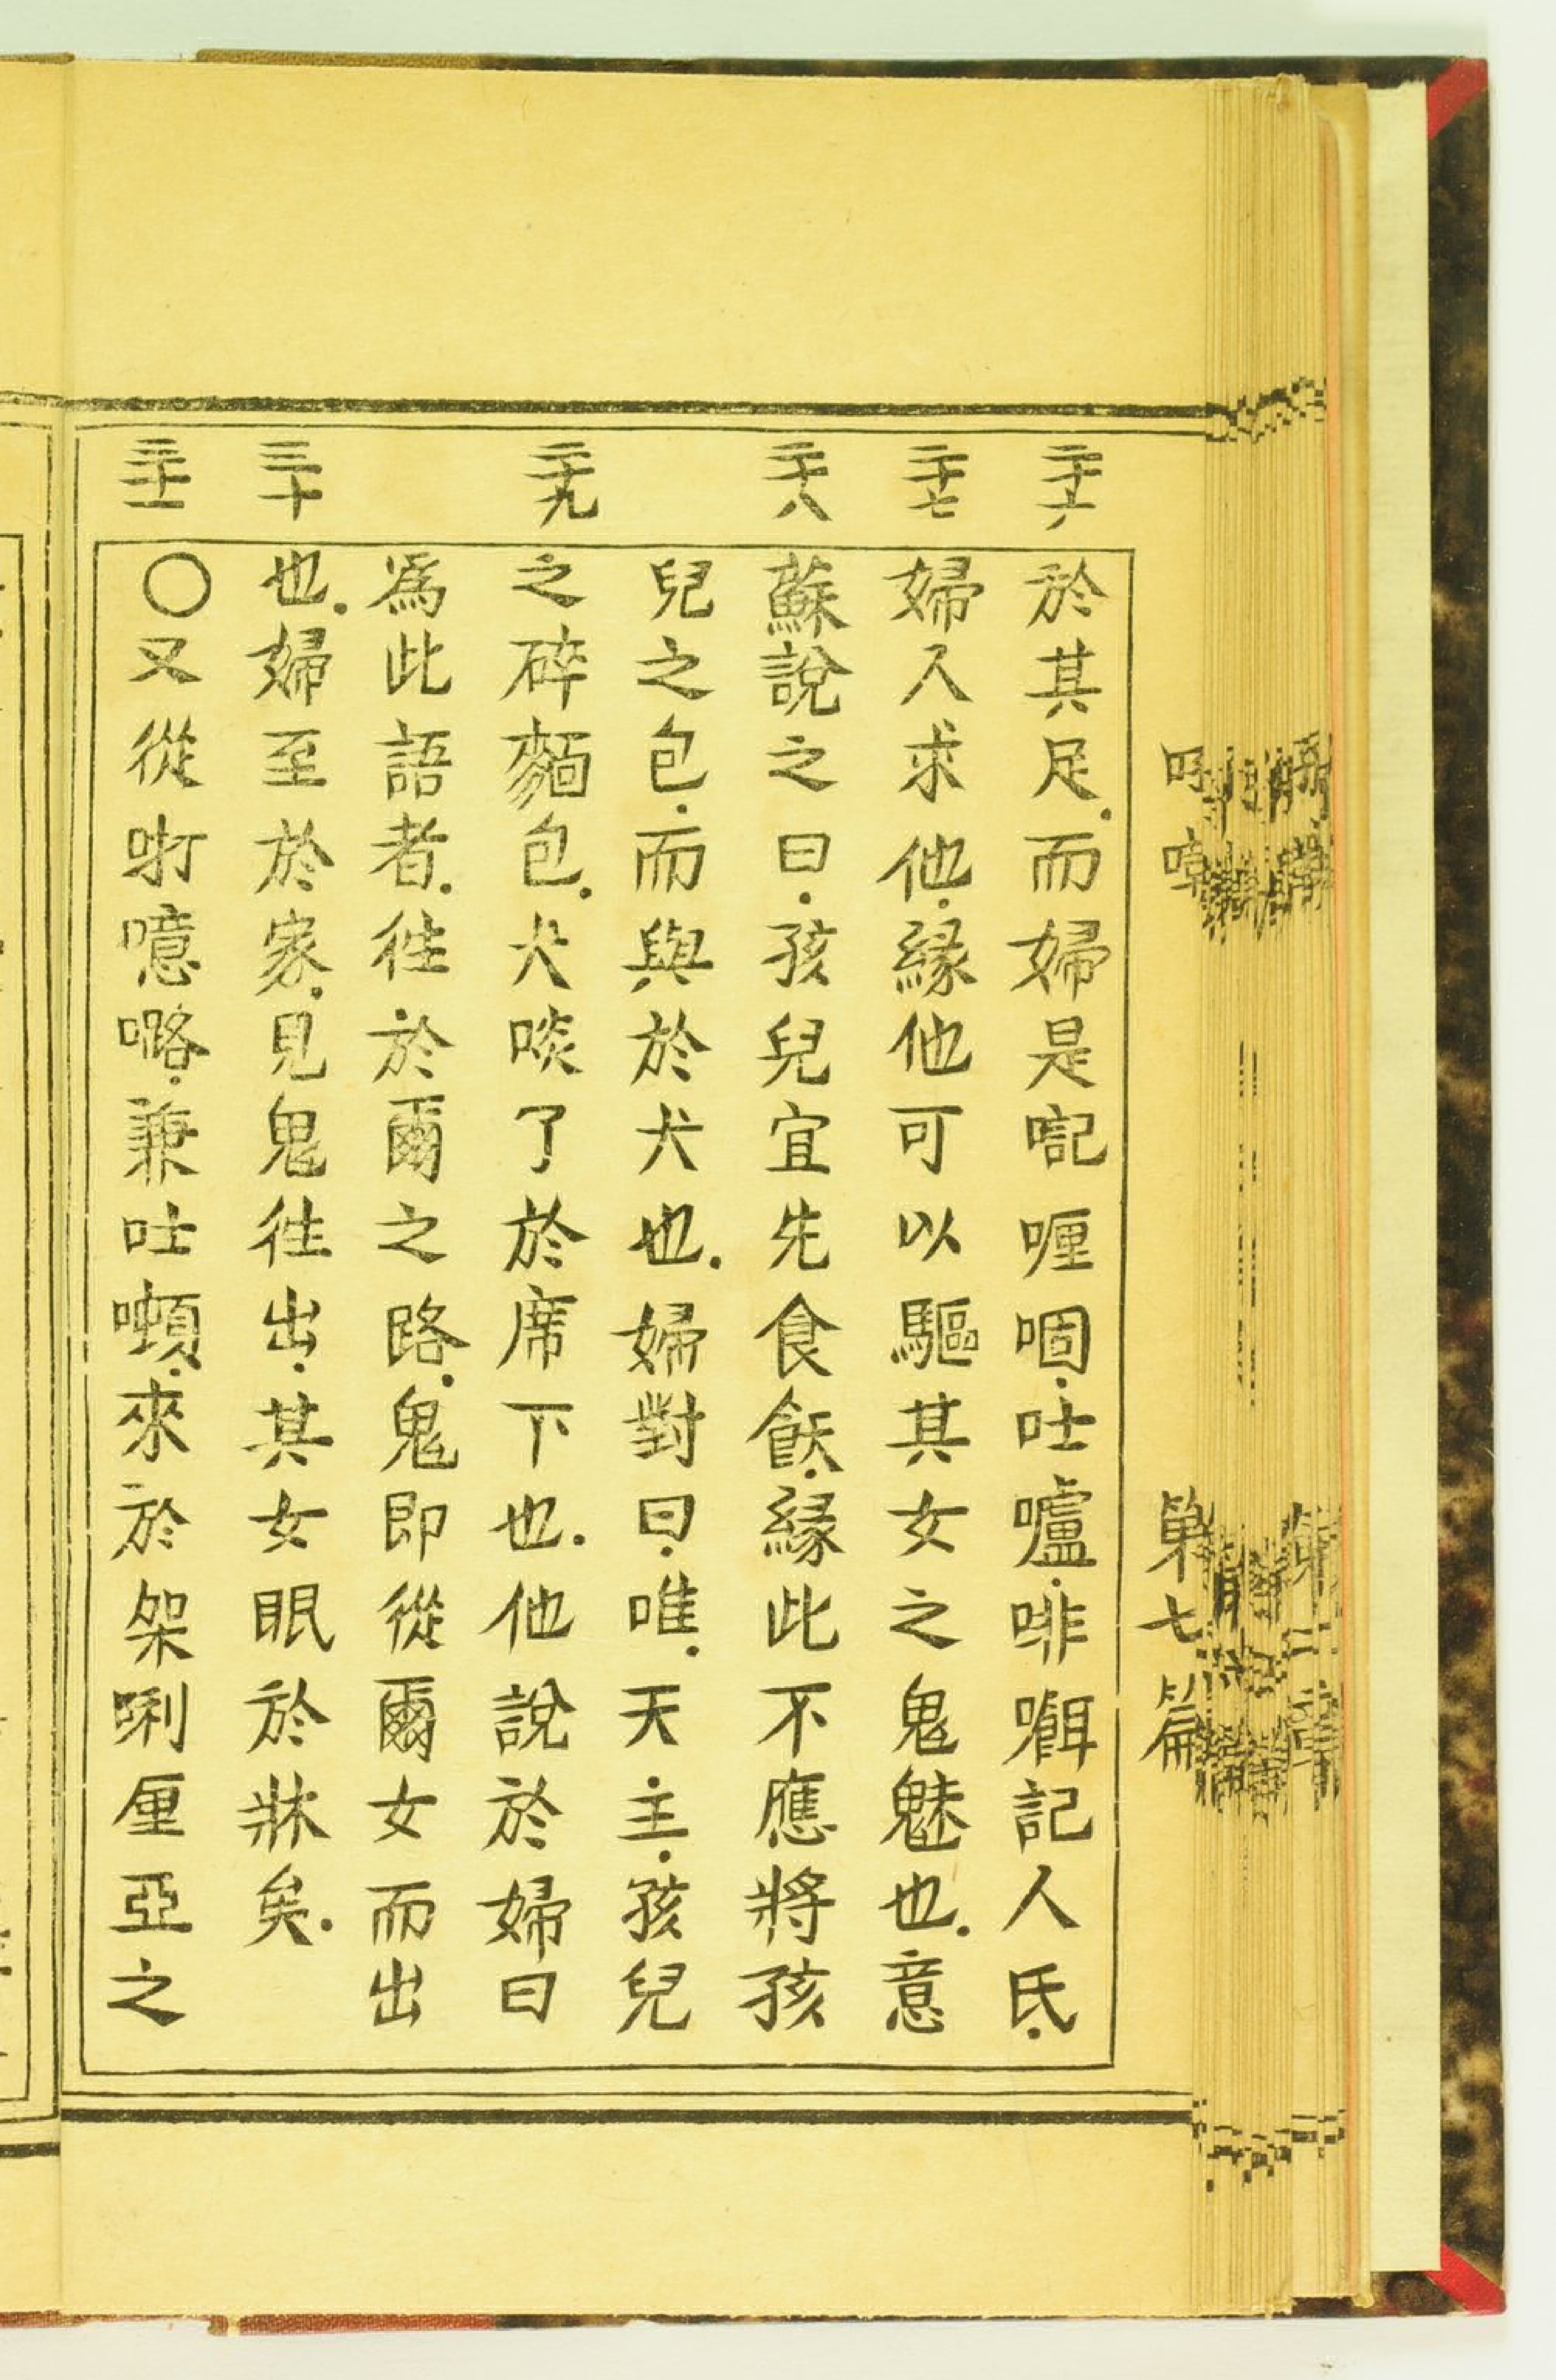 第七篇
二十六
二十七
二十八
二十九
三十
三十一
於其足.而婦是嘅喱啯.吐嚧.啡𡃤記人氏.
婦人求他.緣他可以驅其女之鬼魅也.意
蘇說之曰.孩兒宜先食飫.緣此不應將孩
兒之包.而與於犬也.婦對曰.唯.天主.孩兒
之碎麵包.犬啖了於席下也.他說於婦曰
爲此語者.徃於爾之路.鬼即從爾女而出
也.婦至於家.見鬼徃出.其女眠於牀矣.
〇又從咑噫嚕.兼吐囋.來於架唎厘亞之